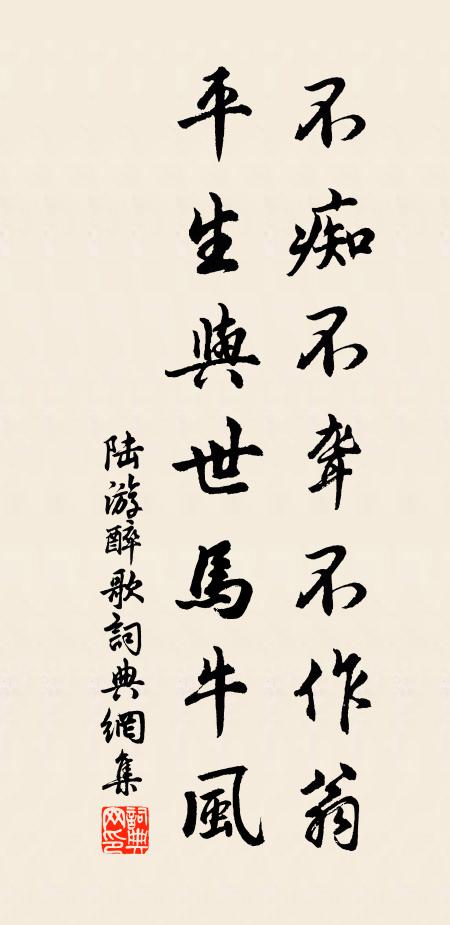 不痴不聋不作翁
平生與世馬牛風
陸游醉歌詞典網集
詞典
网印